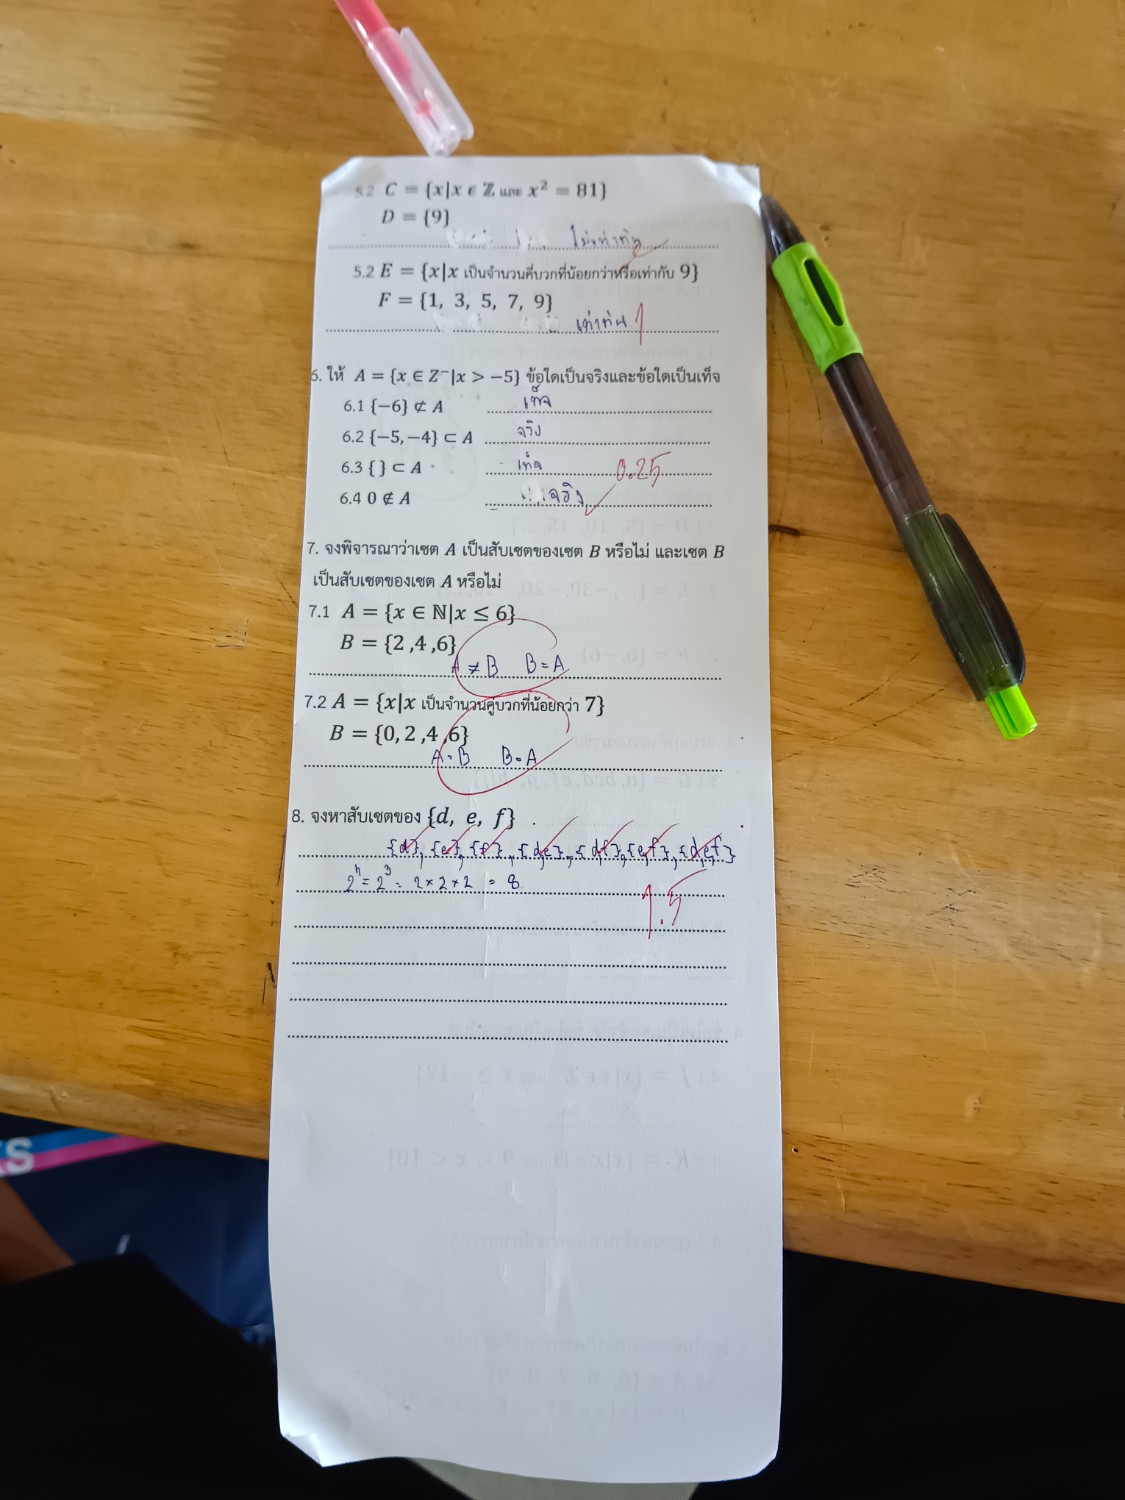 5.2 C = {x|x ϵ ℤ และ x² = 81}
D = {9}
ไม่เท่ากัน
5.2 E = {x|x เป็นจำนวนคี่บวกที่น้อยกว่าหรือเท่ากับ 9}
F = {1, 3, 5, 7, 9}
เท่ากัน 1
6. ให้ A = {x ∈ Z⁻|x > −5} ข้อใดเป็นจริงและข้อใดเป็นเท็จ
6.1 {−6} ⊄ A เท็จ
6.2 {−5, −4} ⊂ A จริง
6.3 { } ⊂ A เท็จ 0.25
6.4 0 ∉ A จริง
7. จงพิจารณาว่าเซต A เป็นสับเซตของเซต B หรือไม่ และเซต B
เป็นสับเซตของเซต A หรือไม่
7.1 A = {x ∈ ℕ|x ≤ 6}
B = {2 ,4 ,6}
A ≠ B B = A
7.2 A = {x|x เป็นจำนวนคู่บวกที่น้อยกว่า 7}
B = {0, 2 ,4 ,6}
A = B B = A
8. จงหาสับเซตของ {d, e, f}
{d}, {e}, {f}, {d,e}, {d,f}, {e,f}, {d,e,f}
2ⁿ = 2³ = 2 × 2 × 2 = 8
1.5
KS